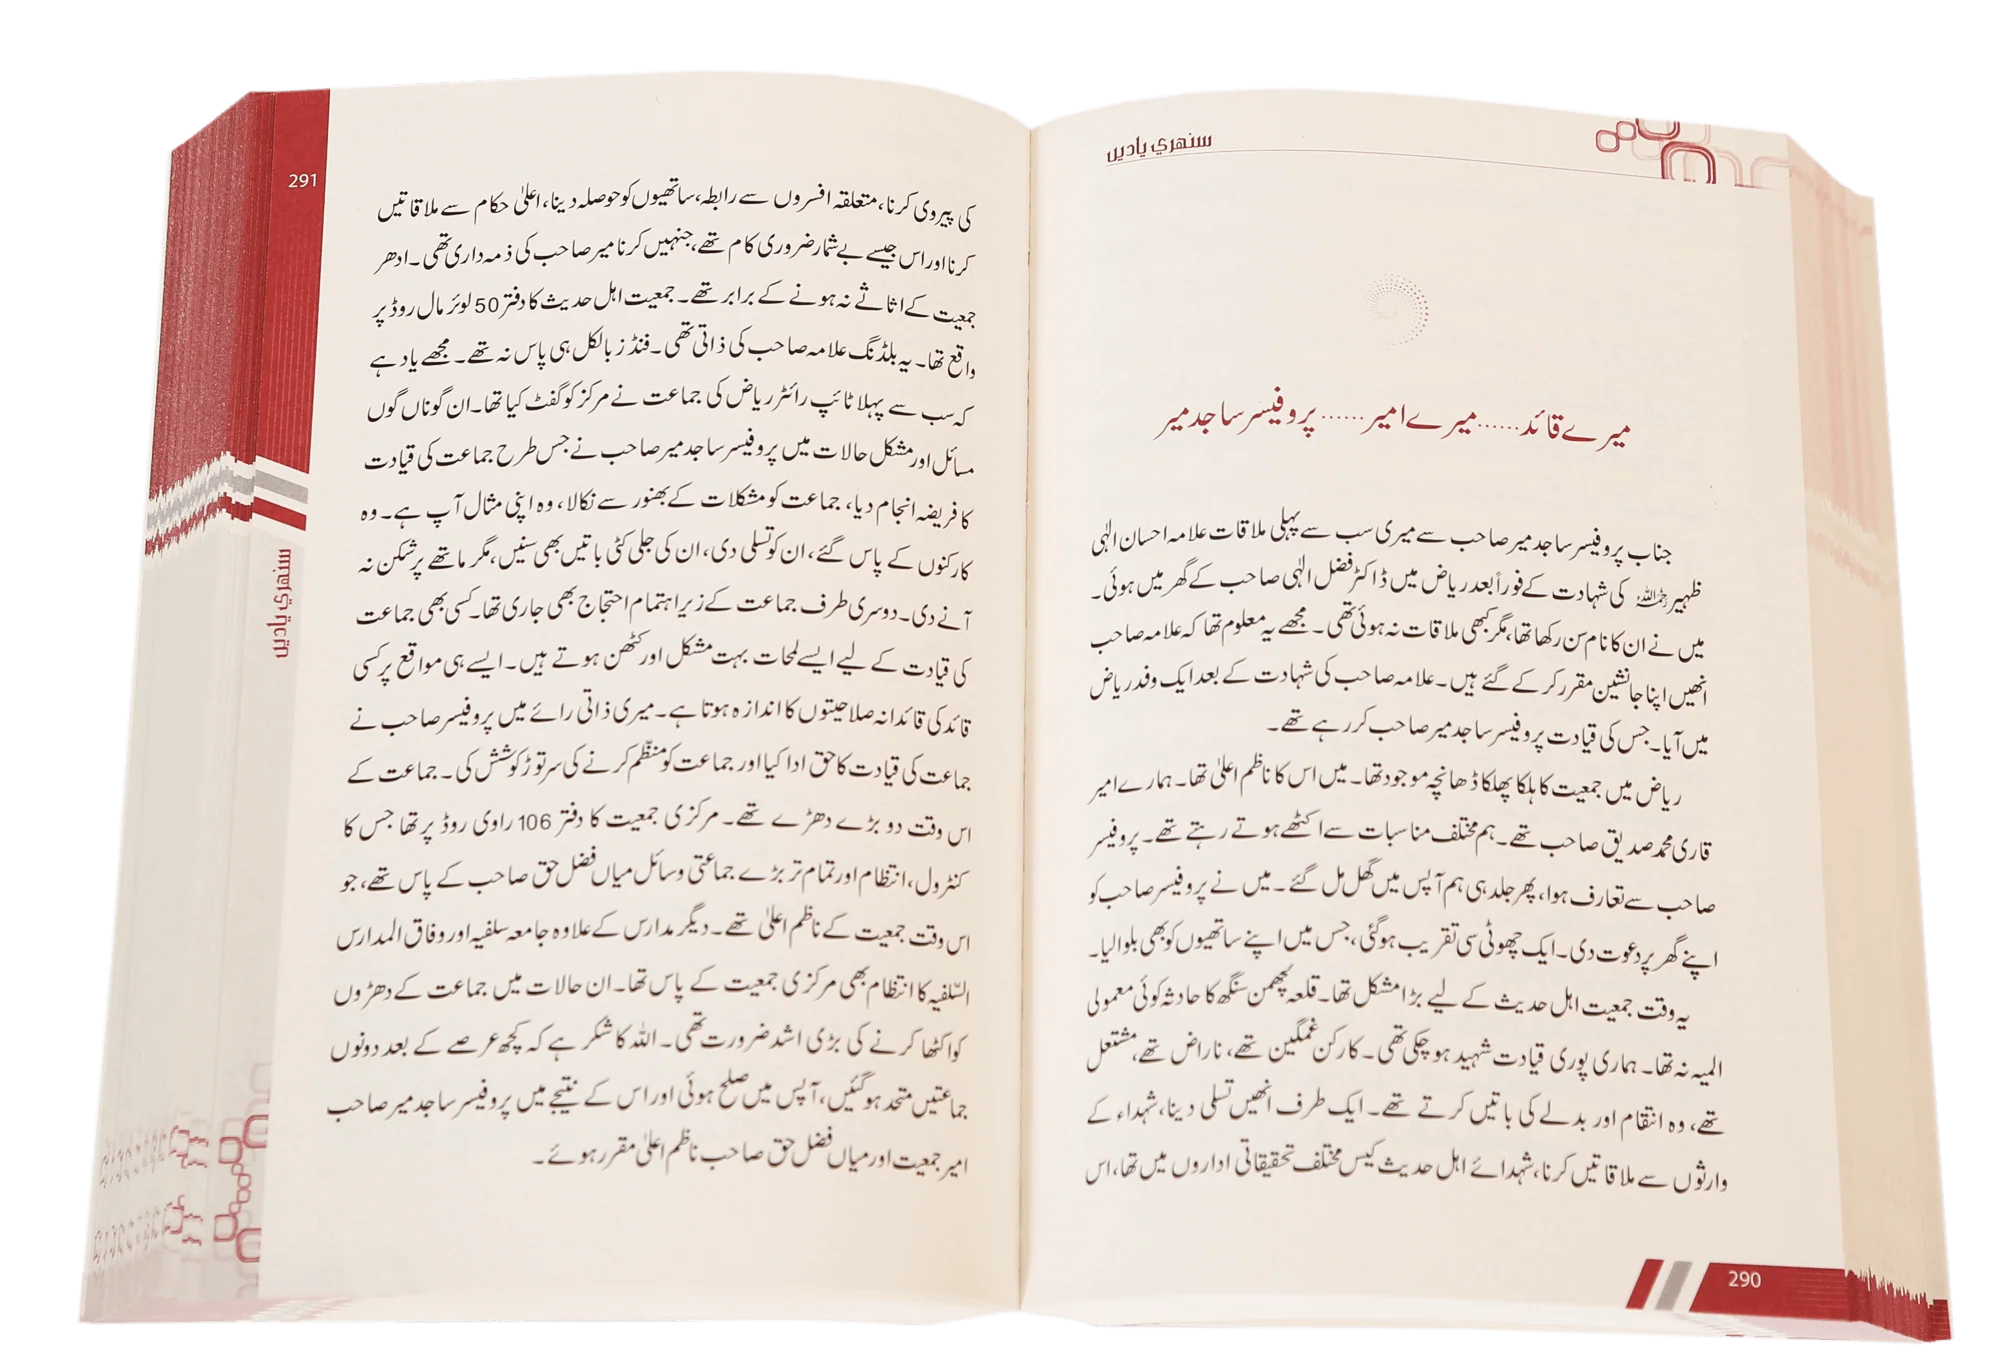 سنهري یادیں
میرے قائد......میرے امیر......پروفیسر ساجد میر
جناب پروفیسر ساجد میر صاحب سے میری سب سے پہلی ملاقات علامہ احسان الٰہی
ظہیر رحمہ اللہ کی شہادت کے فوراً بعد ریاض میں ڈاکٹر فضل الٰہی صاحب کے گھر میں ہوئی۔
میں نے ان کا نام سن رکھا تھا، مگر کبھی ملاقات نہ ہوئی تھی۔ مجھے یہ معلوم تھا کہ علامہ صاحب
انھیں اپنا جانشین مقرر کر کے گئے ہیں۔ علامہ صاحب کی شہادت کے بعد ایک وفد ریاض
میں آیا۔ جس کی قیادت پروفیسر ساجد میر صاحب کر رہے تھے۔
ریاض میں جمعیت کا ہلکا پھلکا ڈھانچہ موجود تھا۔ میں اس کا ناظم اعلیٰ تھا۔ ہمارے امیر
قاری محمد صدیق صاحب تھے۔ ہم مختلف مناسبات سے اکٹھے ہوتے رہتے تھے۔ پروفیسر
صاحب سے تعارف ہوا، پھر جلد ہی ہم آپس میں گھل مل گئے۔ میں نے پروفیسر صاحب کو
اپنے گھر پر دعوت دی۔ ایک چھوٹی سی تقریب ہو گئی، جس میں اپنے ساتھیوں کو بھی بلوا لیا۔
یہ وقت جمعیت اہل حدیث کے لیے بڑا مشکل تھا۔ قلعہ لچھمن سنگھ کا حادثہ کوئی معمولی
المیہ نہ تھا۔ ہماری پوری قیادت شہید ہو چکی تھی۔ کارکن غمگین تھے، ناراض تھے، مشتعل
تھے، وہ انتقام اور بدلے کی باتیں کرتے تھے۔ ایک طرف انھیں تسلی دینا، شہداء کے
وارثوں سے ملاقاتیں کرنا، شہدائے اہل حدیث کیس مختلف تحقیقاتی اداروں میں تھا، اس
290
291
سنهري یادیں
کی پیروی کرنا، متعلقہ افسروں سے رابطہ، ساتھیوں کو حوصلہ دینا، اعلیٰ حکام سے ملاقاتیں
کرنا اور اس جیسے بے شمار ضروری کام تھے، جنہیں کرنا میر صاحب کی ذمہ داری تھی۔ ادھر
جمعیت کے اثاثے نہ ہونے کے برابر تھے۔ جمعیت اہل حدیث کا دفتر 50 لوئر مال روڈ پر
واقع تھا۔ یہ بلڈنگ علامہ صاحب کی ذاتی تھی۔ فنڈز بالکل ہی پاس نہ تھے۔ مجھے یاد ہے
کہ سب سے پہلا ٹائپ رائٹر ریاض کی جماعت نے مرکز کو گفٹ کیا تھا۔ ان گوناں گوں
مسائل اور مشکل حالات میں پروفیسر ساجد میر صاحب نے جس طرح جماعت کی قیادت
کا فریضہ انجام دیا، جماعت کو مشکلات کے بھنور سے نکالا، وہ اپنی مثال آپ ہے۔ وہ
کارکنوں کے پاس گئے، ان کو تسلی دی، ان کی جلی کٹی باتیں بھی سنیں، مگر ماتھے پر شکن نہ
آنے دی۔ دوسری طرف جماعت کے زیر اہتمام احتجاج بھی جاری تھا۔ کسی بھی جماعت
کی قیادت کے لیے ایسے لمحات بہت مشکل اور کٹھن ہوتے ہیں۔ ایسے ہی مواقع پر کسی
قائد کی قائدانہ صلاحیتوں کا اندازہ ہوتا ہے۔ میری ذاتی رائے میں پروفیسر صاحب نے
جماعت کی قیادت کا حق ادا کیا اور جماعت کو منظّم کرنے کی سر توڑ کوشش کی۔ جماعت کے
اس وقت دو بڑے دھڑے تھے۔ مرکزی جمعیت کا دفتر 106 راوی روڈ پر تھا جس کا
کنٹرول، انتظام اور تمام تر بڑے جماعتی وسائل میاں فضل حق صاحب کے پاس تھے، جو
اس وقت جمعیت کے ناظم اعلیٰ تھے۔ دیگر مدارس کے علاوہ جامعہ سلفیہ اور وفاق المدارس
السّلفیہ کا انتظام بھی مرکزی جمعیت کے پاس تھا۔ ان حالات میں جماعت کے دھڑوں
کو اکٹھا کرنے کی بڑی اشد ضرورت تھی۔ اللہ کا شکر ہے کہ کچھ عرصے کے بعد دونوں
جماعتیں متحد ہو گئیں، آپس میں صلح ہوئی اور اس کے نتیجے میں پروفیسر ساجد میر صاحب
امیر جمعیت اور میاں فضل حق صاحب ناظم اعلیٰ مقرر ہوئے۔